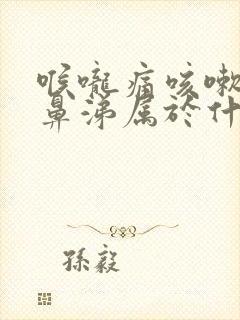 喉嚨痛咳嗽
鼻涕属於什
孫毅